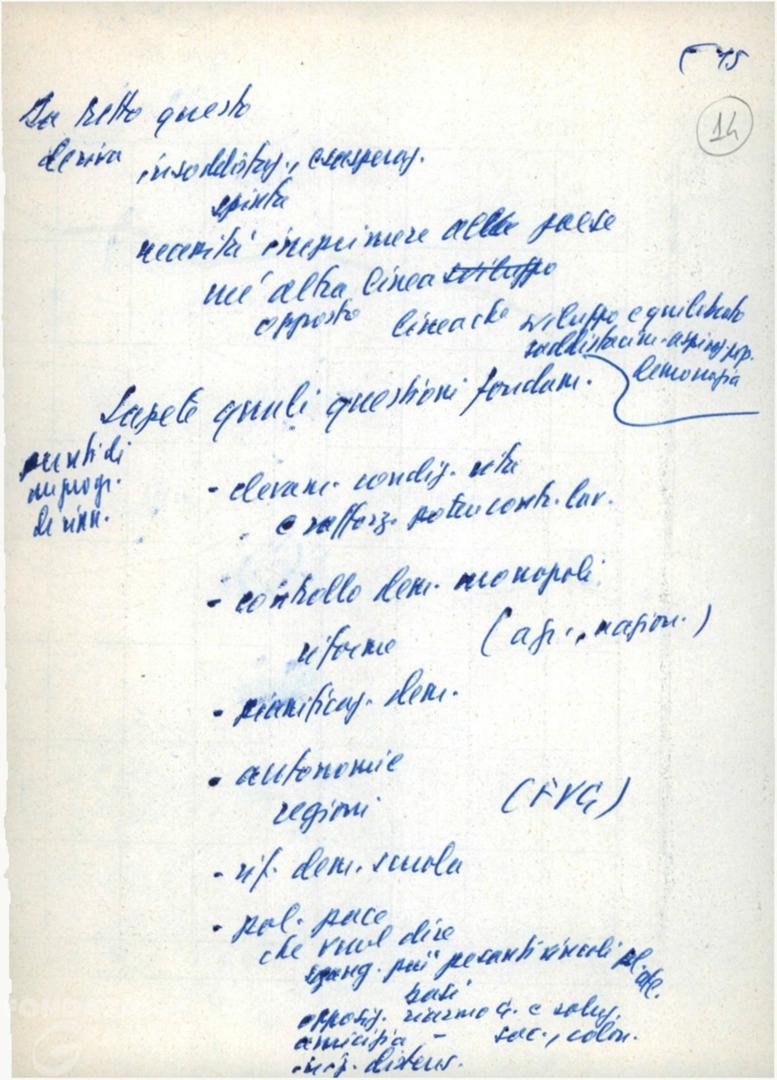 15
14
Da tutto questo
deriva insoddisfaz., esasperaz.
spinta
necessità imprimere alla paese
un'altra linea sviluppo
opposta linea che sviluppo equilibrato
aspiraz. pop.
democrazia
Sapete quali questioni fondam.
punti di
un progr.
di rinn.
- elevam. condiz. vita
e rafforz. potere contr. lav.
- controllo dem. monopoli
riforme (agr., nazion.)
- pianificaz. dem.
- autonomie
regioni (FVG)
- rif. dem. scuola
- pol. pace
che vuol dire
più pesanti vincoli
basi
opposiz. riarmo
amicizia - soc., colon.
iniz. distens.